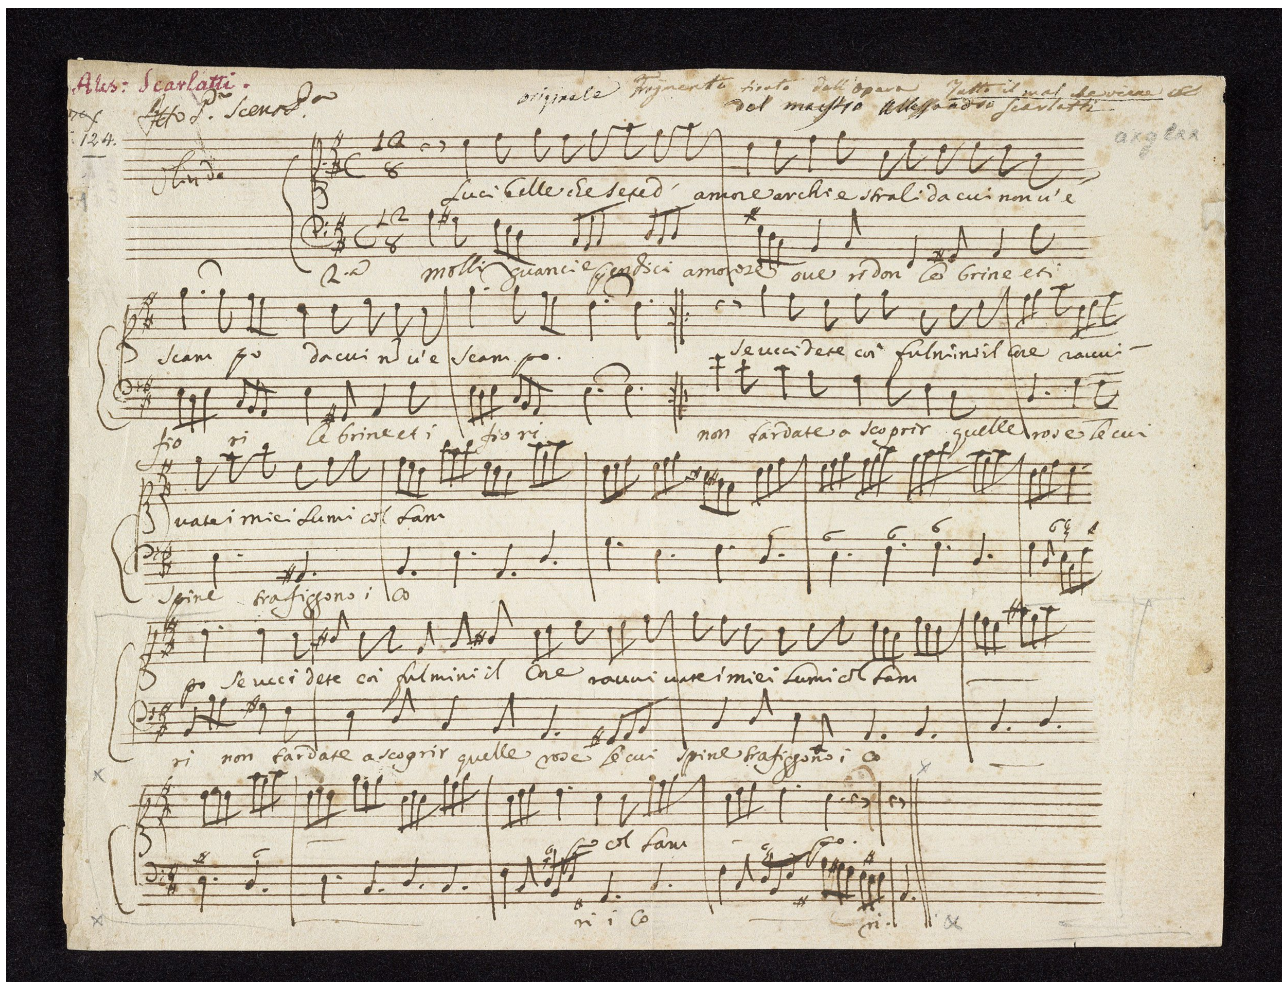 Ales: Scarlatti.
originale fragmento tirato dall'opera Tutto il mal che viene
del maestro Alessandro Scarlatti
Atto P.º Scena
124.
axylxx
12
8
Luci belle che sete d'amore archi e strali da cui non v'è
12
8
2.a molli guancie giardici amorose oue ridon le brine et i
scam po da cui nō v'è scam po. se uccidete coi fulmini il Core rauui
fio ri le brine et i fiori non tardate a scoprir quelle rose le cui
uate i miei lumi col lam
6 6 6
spine trafiggono i Co
po se uccidete coi fulmini il Core rauui uate i miei lumi col lam
ri non tardate a scoprir quelle rose le cui spine trafiggono i Co
po col lam po.
ri i Co ri.